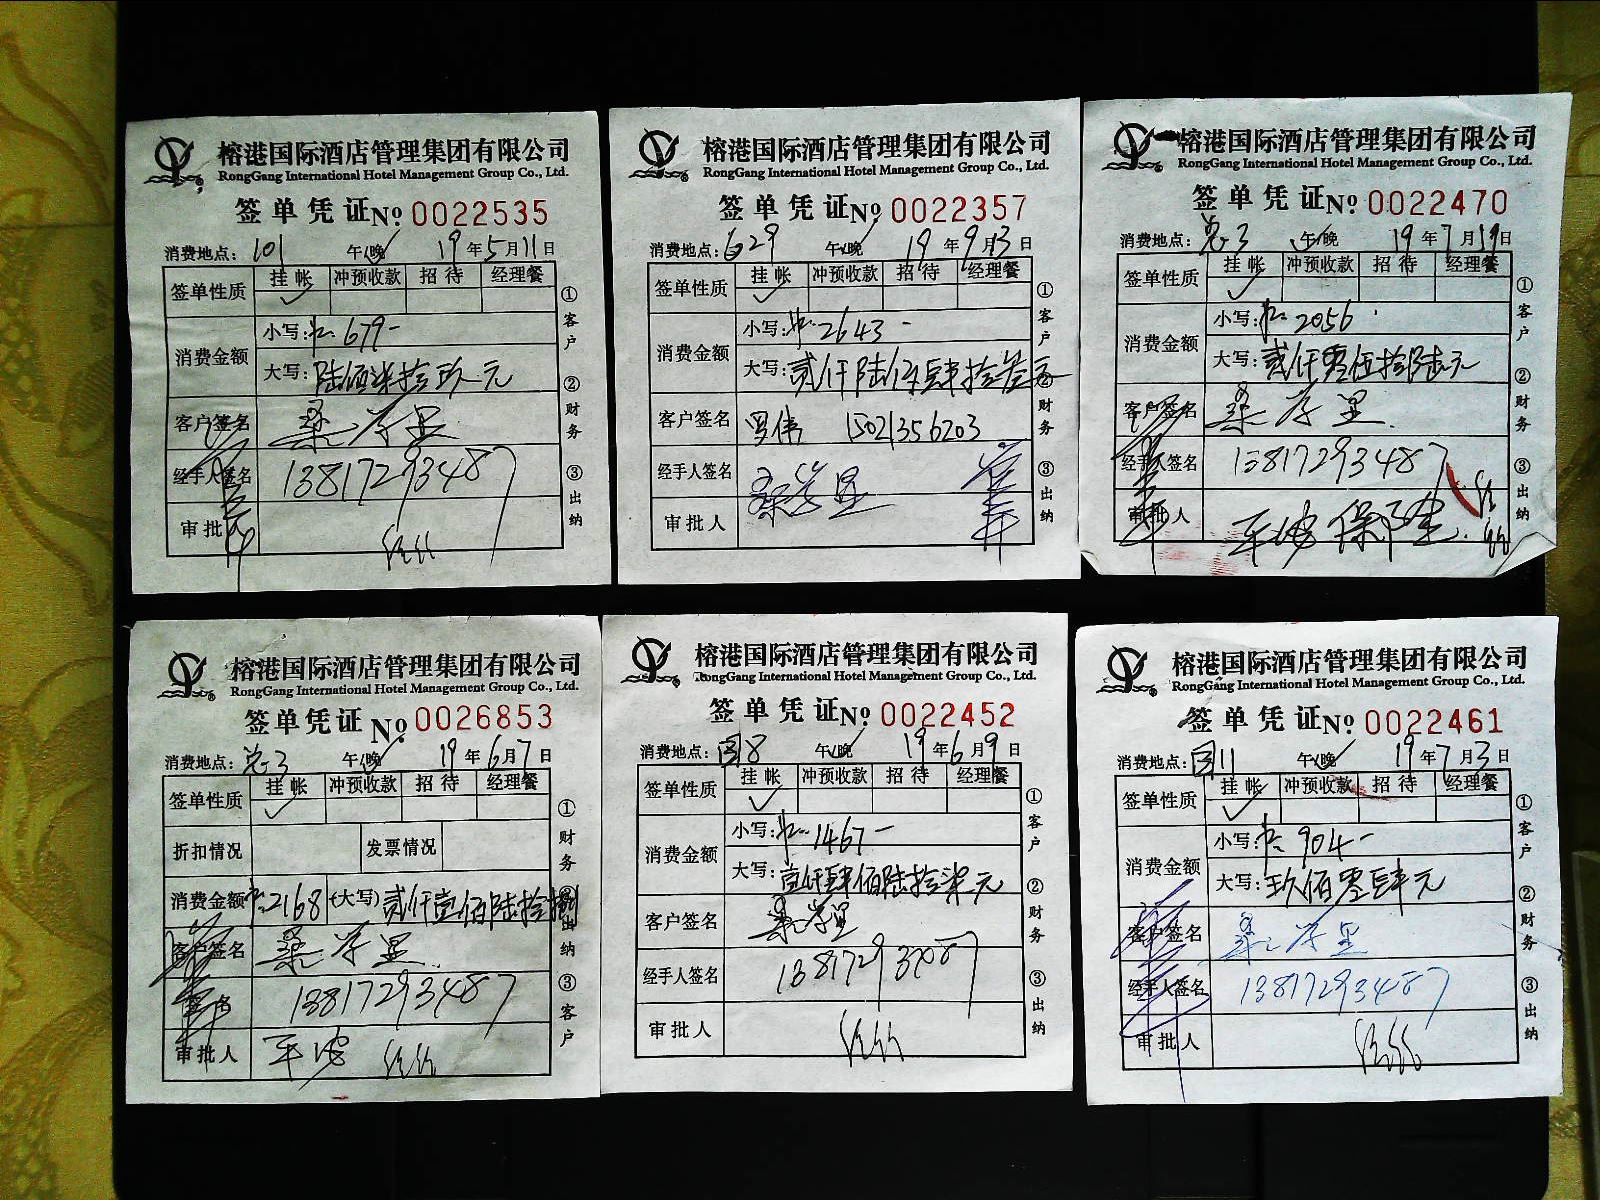 榕港国际酒店管理集团有限公司
RongGang International Hotel Management Group Co., Ltd.
签单凭证 No. 0022535
消费地点: 101 午/晚 19年5月11日
签单性质 挂帐 冲预收款 招待 经理餐
消费金额 小写: 679-
大写: 陆佰柒拾玖元
客户签名
经手人签名 13817293487
审批人
①客户 ②财务 ③出纳
榕港国际酒店管理集团有限公司
RongGang International Hotel Management Group Co., Ltd.
签单凭证 No. 0022357
消费地点: 629 午/晚 19年9月13日
签单性质 挂帐 冲预收款 招待 经理餐
消费金额 小写: 2643-
大写: 贰仟陆佰肆拾叁元
客户签名 罗伟 15021356203
经手人签名
审批人
①客户 ②财务 ③出纳
榕港国际酒店管理集团有限公司
RongGang International Hotel Management Group Co., Ltd.
签单凭证 No. 0022470
消费地点: 总3 午/晚 19年7月19日
签单性质 挂帐 冲预收款 招待 经理餐
消费金额 小写: 2056
大写: 贰仟零伍拾陆元
客户签名
经手人签名 13817293487
审批人
①客户 ②财务 ③出纳
榕港国际酒店管理集团有限公司
RongGang International Hotel Management Group Co., Ltd.
签单凭证 No. 0026853
消费地点: 总3 午/晚 19年6月7日
签单性质 挂帐 冲预收款 招待 经理餐
折扣情况 发票情况
消费金额 2168 (大写) 贰仟壹佰陆拾捌
客户签名
13817293487
审批人
①财务 ②出纳 ③客户
榕港国际酒店管理集团有限公司
RongGang International Hotel Management Group Co., Ltd.
签单凭证 No. 0022452
消费地点: 国8 午/晚 19年6月9日
签单性质 挂帐 冲预收款 招待 经理餐
消费金额 小写: 1467-
大写: 壹仟肆佰陆拾柒元
客户签名
经手人签名
审批人
①客户 ②财务 ③出纳
榕港国际酒店管理集团有限公司
RongGang International Hotel Management Group Co., Ltd.
签单凭证 No. 0022461
消费地点: 国11 午/晚 19年7月3日
签单性质 挂帐 冲预收款 招待 经理餐
消费金额 小写: 904-
大写: 玖佰零肆元
客户签名
经手人签名 13817293487
审批人
①客户 ②财务 ③出纳